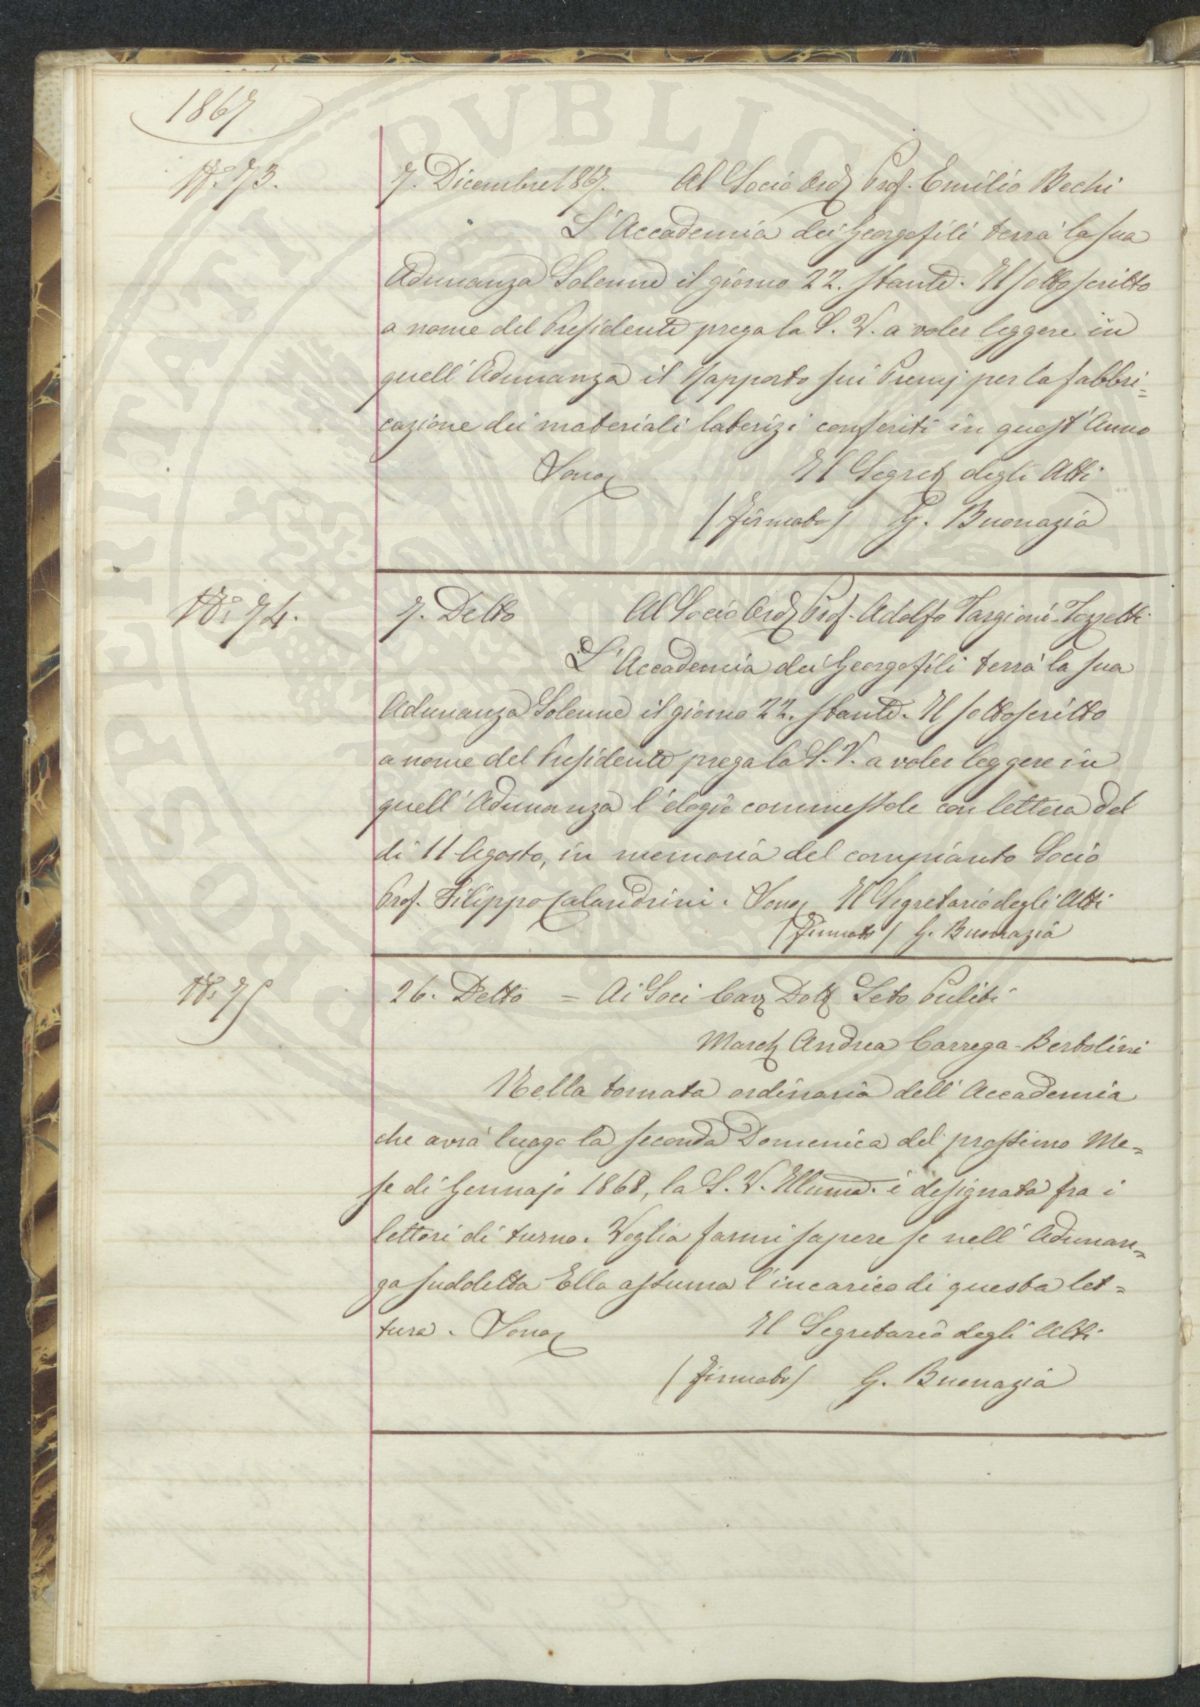 1867
N.° 73.
7. Dicembre 1867. Al Socio Ord. Prof. Emilio Bechi
L'Accademia dei Georgofili terrà la sua
Adunanza Solenne il giorno 22. stante. Il sottoscritto
a nome del Presidente prega la S. V. a voler leggere in
quell'Adunanza il Rapporto sui Premj per la fabbri=
cazione dei materiali laterizi conferiti in quest'Anno
Sono Il Segret. degli Atti
(firmato) G. Buonazia
N.° 74.
7. Detto Al Socio Ord. Prof. Adolfo Targioni-Tozzetti
L'Accademia dei Georgofili terrà la sua
Adunanza Solenne il giorno 22. stante. Il sottoscritto
a nome del Presidente prega la S. V. a voler leggere in
quell'Adunanza l'elogio commessole con lettera del
dì 11 Agosto, in memoria del compianto Socio
Prof. Filippo Calandrini. Sono Il Segretario degli Atti
(firmato) G. Buonazia
N. 75
26. Detto = Ai Soci Cav. Dott. Seto Puliti
March. Andrea Carrega-Bertolini
Nella tornata ordinaria dell'Accademia
che avrà luogo la seconda Domenica del prossimo Me=
se di Gennajo 1868, la S. V. Illuma. è designata fra i
lettori di turno. Voglia farmi sapere se nell'Adunan=
za suddetta Ella assuma l'incarico di questa let=
tura. Sono Il Segretario degli Atti
(firmato) G. Buonazia
PVBLICAE
PROSPERITATI